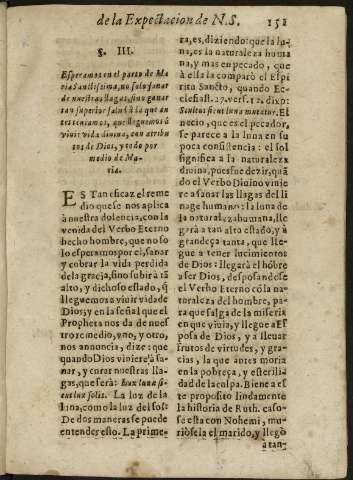 de la Expectacion de N.S. 151
§. III.
Esperamos en el parto de Ma
ria Santissima, no solo sanar
de nuestras llagas, sino ganar
tan superior salud à la que an
tes teniamos, que lleguemos à
vivir vida divina, con atribu
tos de Dios, y todo por
medio de Ma-
ria.
ES Tan eficaz el reme
dio que se nos aplica
à nuestra dolencia, con la
venida del Verbo Eterno
hecho hombre, que no so
lo esperamos por el, sanar
y cobrar la vida perdida
de la gracia, sino subir à tã
alto, y dichoso estado, q̃
lleguemos à vivir vida de
Dios, y en la señal que el
Propheta nos da de nues
tro remedio, vno, y otro,
nos annuncia, dize: que
quando Dios viniere à sa-
nar, y curar nuestras lla-
gas, que serà: lux lunæ si
cut lux solis. La luz de la
luna, como la luz del sol:
De dos maneras se puede
entender esto. La prime-
ra, es, diziendo: que la lu-
na, es la naturaleza huma
na, y mas en pecado, que
à ella la comparò el Espi
ritu Sancto, quando Ec-
clesiast. 27. vers. 12. dixo:
Stultus sicut luna mutatur. El
honbre, que es pecador,
se parece a la luna en su
poca consistencia: el sol
significa à la naturaleza
divina, pues fue dezir, quã
do el Verbo Divino vinie
re a sanar las llagas del li
nage humano: la luna de
la naturaleza humana, lle
garà a tan alto estado, y à
grandeça tanta, que lle-
gue a tener lucimientos
de Dios: llegarà el hõbre
a ser Dios, desposandose
el Verbo Eterno cõ la na
turaleza del hombre, pa-
ra que salga de la miseria
en que vivia, y llegue a Es
posa de Dios, y a llevar
frutos de virtudes, y gra-
cias, la que antes moria
en la pobreça, y esterili-
dad de la culpa. Biene a es
te proposito lindamente
la historia de Ruth. caso-
sa esta con Nohemi, mu-
riòsele el marido, y llegò
a tan-